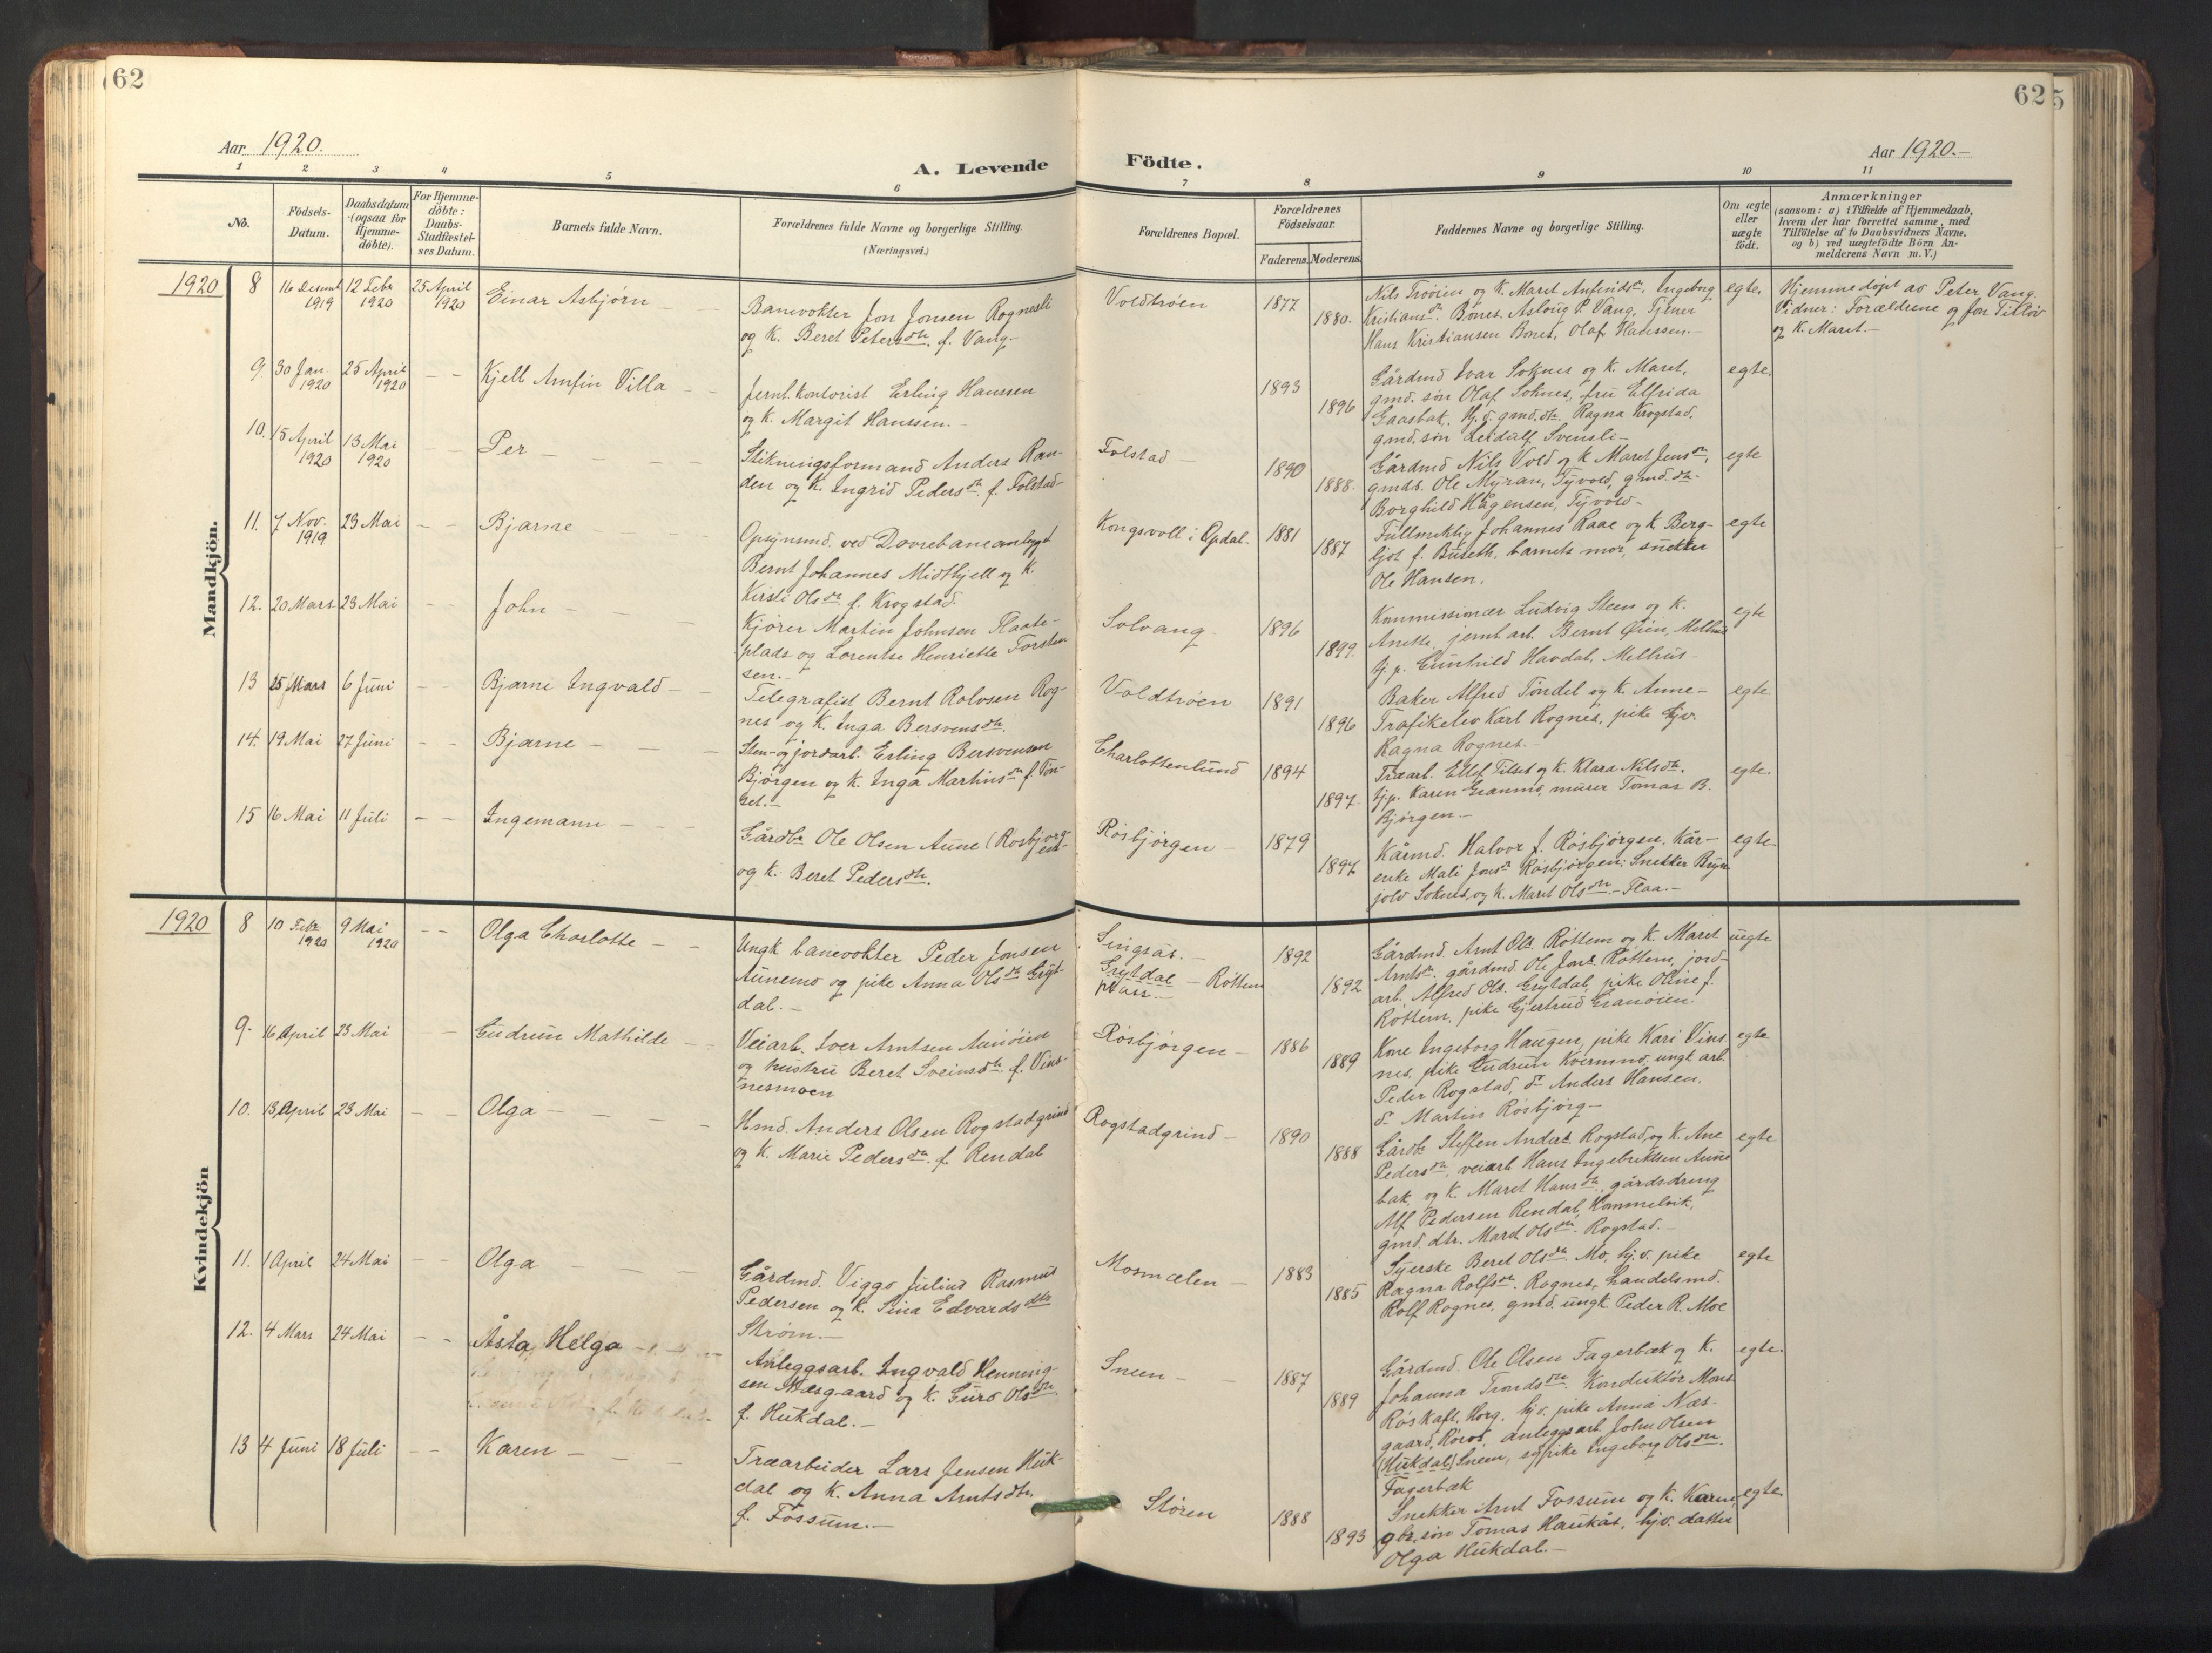 62
625
Aar 1920.
A. Levende
Födte.
Aar 1920.-
1 2 3 4 5 6 7 8 9 10 11
No.
Födsels-
Datum.
Daabsdatum
(ogsaa for
Hjemme-
döbte).
For Hjemme-
döbte:
Daabs-
Stadfæstel-
ses Datum.
Barnets fulde Navn.
Forældrenes fulde Navne og borgerlige Stilling.
(Næringsvei.)
Forældrenes Bopæl.
Forældrenes
Födselsaar.
Faderens. Moderens.
Faddernes Navne og borgerlige Stilling.
Om ægte
eller
uægte
födt.
Anmærkninger
(saasom: a) i Tilfælde af Hjemmedaab,
hvem der har forrettet samme, med
Tilföielse af to Daabsvidners Navne,
og b) ved uægtefödte Börn An-
melderens Navn m. V.)
Mandkjön.
1920 8 16 Desemb 1919 12 Febr 1920 25 April 1920 Einar Asbjørn
Banevokter Jon Jonsen Rognesli
og K. Beret Petersdtr. f. Vang-
Voldtrøen 1877 1880.
Nils Trøoien og K. Maret Anfindsdtr, Ingeborg
Kristiansdtr. Bones, Aslaug P. Vang, Tjener
Hans Kristiansen Bones, Olaf Hanssen.-
egte.
Hjemmedøpt av Peter Vang.
Vidner: Forældrene og Jon Tilløv
og K. Maret.-
9. 30 Jan. 1920 25 April 1920 - - Kjell Arnfin Villa
Jernb. kontorist Erling Hanssen
og K. Margit Hanssen.-
1893 1896
Gårdmd Ivar Soknes og K. Maret,
gmd. søn Olaf Soknes, fru Elfrida
Gaasbak, Hj. v. gmd. dtr. Ragna Krogstad,
gmd. søn Leidulf Svensli-
egte.
10. 15 April 1920 13 Mai 1920 - - Per
Stikningsformand Anders Ran-
den og K. Ingrid Pedersdtr. f. Folstad-
Folstad 1890 1888.
Gårdmd Nils Vold og K Maret Jensdtr,
gmds. Ole Myran, Tyvold, gmd. dtr.
Borghild Hågensen, Tyvold-
egte
11. 7 Nov. 1919 23 Mai - - Bjarne
Opsynsmd. ved Dovrebaneanlegget
Bernt Johannes Midtkjell og K.
Kirsti Olsdtr. f. Krogstad.
Kongsvoll i Opdal. 1881 1887
Fullmektig Johannes Raae og K. Berg-
ljot f. Buseth, barnets mor, snekker
Ole Hansen.
egte
12. 20 Mars 23 Mai - - John
Kjører Martin Johnsen Flaate-
plads og Lorentse Henriette Torsten
sen.-
Solvang 1896 1899.
Kommissionær Ludvig Steen og K.
Anette, jernb. arb. Bernt Øien, Melhus
tj. p. Gunhild Havdal, Melhus-
egte
13 25 Mars 6 Juni - - Bjarne Ingvald
Telegrafist Bernt Rolvsen Rog-
nes og K. Inga Bersvensdtr.
Voldtrøen 1891 1896
Baker Alfred Tøndel og K. Anne-
Trafikelev Karl Rognes, pike hjv.
Ragna Rognes.-
egte
14. 19 Mai 27 Juni - - Bjarne
Sten- og jordarb. Erling Bersvensen
Bjørgen og K. Inga Martinsdtr. f. Tøn-
set.-
Charlottenlund 1894 1897.
Træarb. Ellef Tilset og K. Klara Nilsdtr.
tj.p. Karen Granmo, murer Tomas B.
Bjørgen-
egte.
15 16 Mai 11 Juli - - Ingemann
Gårdbr Ole Olsen Aune (Rosbjørgen)
og K. Beret Pedersdtr.
Røsbjørgen 1879 1897
Kårmd. Halvor f. Røsbjørgen, Kår-
enke Mali Jonsdtr Røsbjørgen, Snekker Bryn
jolv Soknes, og K. Maret Olsdtr.- Flaa.-
egte
Kvindekjön
1920 8 10 Febr 1920 9 Mai 1920 - - Olga Charlotte
Ungk. banevokter Peder Jonsen
Aunemo og pike Anna Olsdtr Gryt-
dal.-
Singsås.-
Grytdal - Rottem
plass.-
1892 1892
Gårdmd. Arnt Ols. Rottem og K. Maret
Arntsdtr. gårdmd. Ole Jons. Rottem, jord-
arb. Alfred Ols. Grytdal, pike Oline J.
Rottem, pike Gjertrud Granøien.
uegte
9. 16 April 23 Mai - - Gudrun Mathilde
Veiarb. Iver Arntsen Aunøien
og hustru Beret Sveinsdtr. f. Vins-
nesmoen
Røsbjørgen 1886 1889
Kone Ingeborg Haugen, pike Kari Vins
nes, pike Gudrun Kvernmo, ungk. arb.
Peder Rogstad, do Anders Hansen.
do Martin Røsbjørg-
egte
10. 13 April 23 Mai - - Olga
Hmd. Anders Olsen Rogstadgrind
og K. Marie Pedersdtr. f. Rendal
Rogstadgrind 1890 1888
Gårdbr Steffen Anders. Rogstad og K. Ane
Pedersdtr, veiarb. Hans Ingebriktsen Aune
bak, og K. Maret Hansdtr, gårdsdreng
Alf Pedersen Rendal, Hommelvik,
gmd. dtr. Maret Olsdtr. Rogstad.-
egte
11. 1 April 24 Mai - - Olga
Gårdmd. Viggo Julius Rasmus
Pedersen og K. Sina Edvardsdtr
Strøm.-
Mosmælen 1883 1885
Syerske Beret Olsdtr. Mo, hj. v. pike
Ragna Rolfsdtr. Rognes, handelsmd.
Rolf Rognes, gmd. ungk. Peder R. Moe
egte
12. 4 Mars 24 Mai - - Åsta Helga
Anleggsarb. Ingvald Henning-
sen Næsgaard og K. Guro Olsdtr.
f. Hukdal.-
Sneen 1887 1889
Gårdmd. Ole Olsen Fagerbæk og K.
Johanna Trondsdtr. Konduktør Mons
Røskaft, Horg. hj v. pike Anna Næs-
gaard, Røros, anleggsarb. John Olsen
(Hukdal) Sneen, sypike Ingeborg Olsdtr.
Fagerbæk
egte.
13 4 Juni 18 Juli - - Karen
Træarbeider Lars Jensen Huk-
dal og K. Anna Arntsdtr.
f. Fossum.-
Støren 1888 1893
Snekker Arnt Fossum og K. Karen
gbr. søn Tomas Haukås, hjv. datter
Olga Hukdal.-
egte